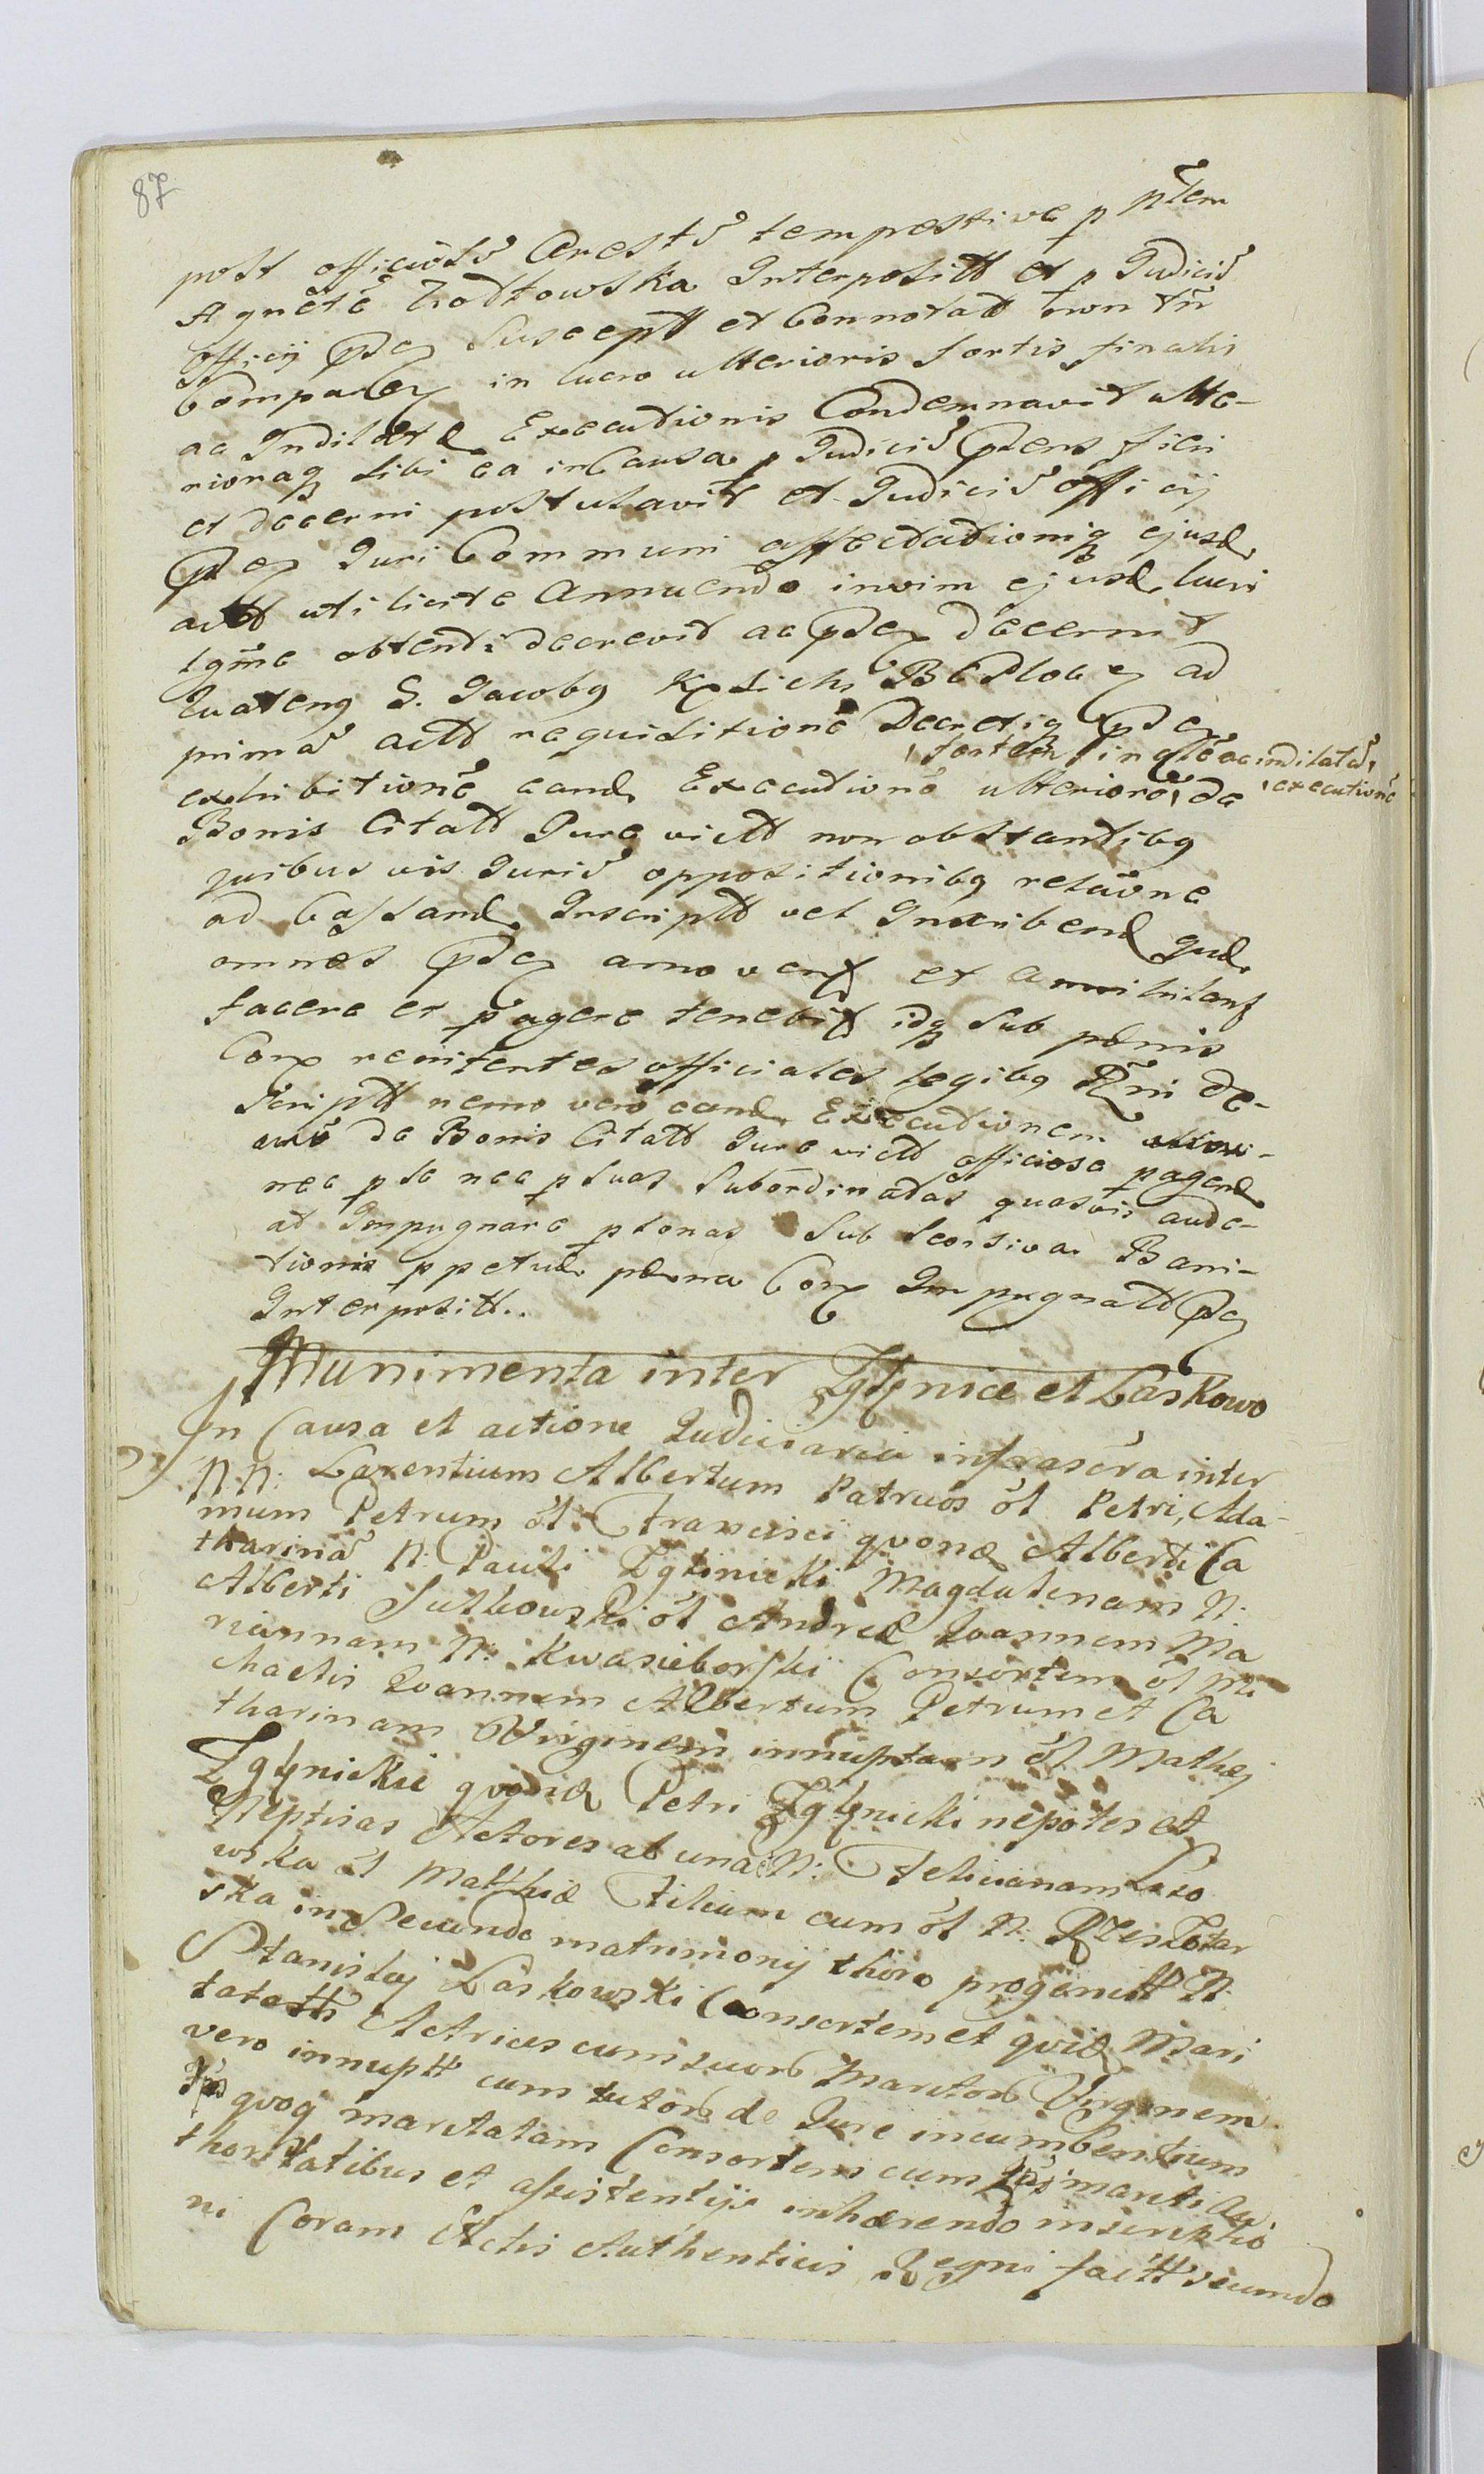 87
post officiosũ Arestũ tempestive p pñtem
Agnetẽ Zodzowska Interpositt et p Judiciũ
officij pñs Susceptt et Connotatt non tñ
Compar in lucro ulterioris sortis finalis
ac Indilatæ Executionis Condemnavit ulte-
rionaq sibi ea in Causa p Judiciũ pñens fieri
et decerni postulavit et Judiciũ officij
pñs Juri Communi affectationiq ejusd,
actt uti licite Annuendo in vim ejusd, lucri
lgme obtenti decrevit ac pñs decernit
quateng G. Jacobg BC Ploc ad
primã actt requisitionẽ Decretiq pñs
sortem finalẽ ac indilatã,
executionẽ
exhibitionẽ eand, Executionẽ ulteriorẽ, de
Bonis Citatt Jure victt non obstantibg
quibus vis Juriũ oppositionibg relãone
ad Cassand, Inscriptt vel Inscribend quæ
omnes pñs amovent et annihilant
facere et pagere tenebit idq sub pœnis
Cont renitentes officiales legibg Rñi de-
scriptt nemo vero eand, Executionem
de Bonis Citatt Jure victt officiose pagend,
nec p se nec p suas subordinatas quasvis aude-
at Impugnare psonas sub seorsiva Bani-
tionis ppetuæ pœna Cont Impugnatt pñs
Interpositt..
Munimenta inter Zglynice et Laskowo
In Causa et actione Judiciaria infrascra inter
NN: Laxentium Albertum Patruos ol Petri, Ada-
mum Petrum ol Francisci qvond Alberti Ca
tharinã N. Pauli Zglinicki Magdalenam N.
Alberti Sutkowski ol Andreæ Joannem Ma
riannam N: Kwasieborski Consortem ol Mi
chaelis Joannem Albertum Petrum et Ca
tharinam Virginem innuptam ol Mathej
Zglynickie qvond Petri Zglynicki nepotes et
Neptias Actores ab una et N: Felicianam
wska ol Matthiæ Filiam cum ol N.
ska in Secundo matrimonij thoro progenitt N.
Stanislaj Laskowski Consortem et qvid Mari
tatatt Actrices cum suorũ Maritorũ Virginem
vero innuptt cum tutorũ de Jure incumbentium
qvoq maritatam Consortem cum sui mariti Au
thoritatibus et assistentijs inhærendo inscriptio
ni Coram Actis Authenticis Regni factt secundo